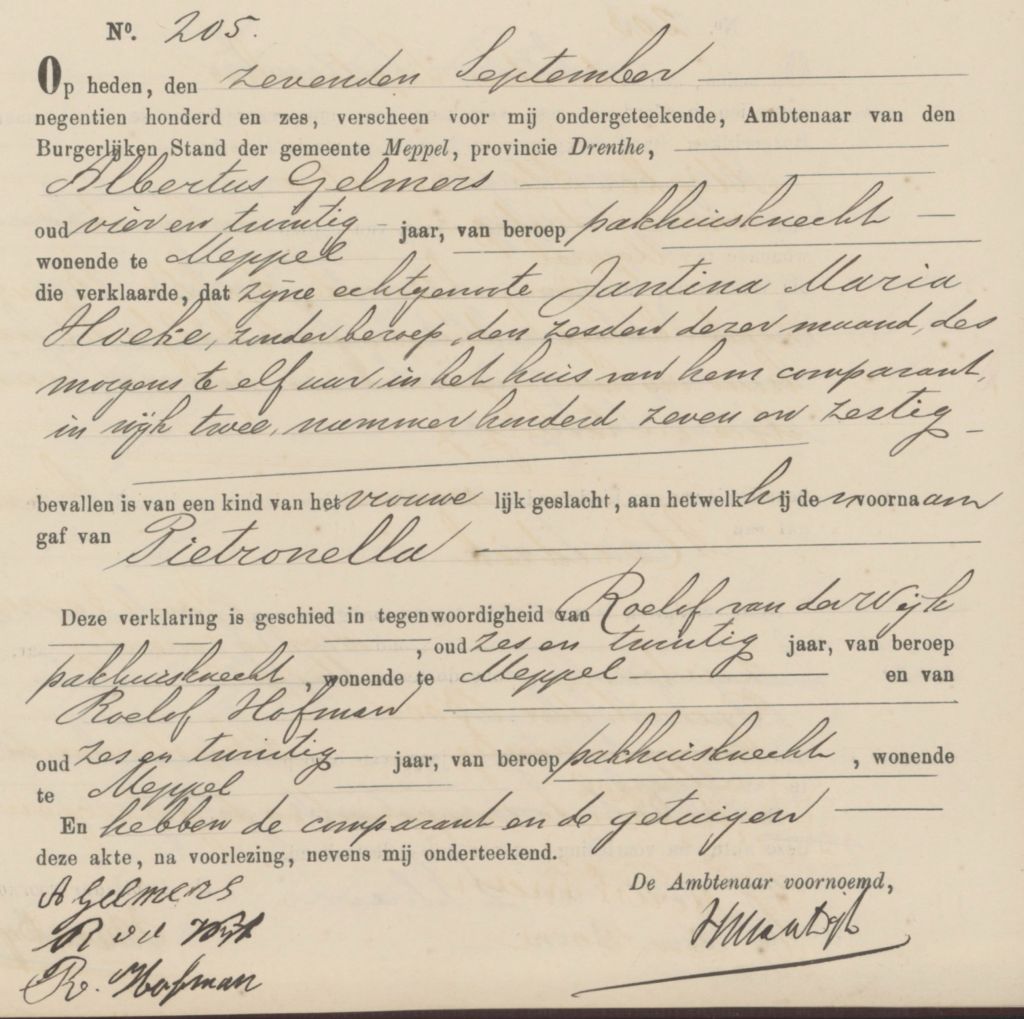 No. 205.
Op heden, den zevenden September
negentien honderd en zes, verscheen voor mij ondergeteekende, Ambtenaar van den
Burgerlijken Stand der gemeente Meppel, provincie Drenthe,
Albertus Gelmers
oud vier en twintig jaar, van beroep pakhuisknecht
wonende te Meppel
die verklaarde, dat zijne echtgenoote Jantina Maria
Hoeke, zonder beroep, den zesden dezer maand, des
morgens te elf uur, in het huis van hem comparant,
in wijk twee, nummer honderd zeven en zestig
bevallen is van een kind van het vrouwelijk geslacht, aan hetwelk hij den voornaam
gaf van Pietronella
Deze verklaring is geschied in tegenwoordigheid van Roelof van der Wijk
, oud zes en twintig jaar, van beroep
pakhuisknecht, wonende te Meppel en van
Roelof Hofman
oud zes en twintig jaar, van beroep pakhuisknecht, wonende
te Meppel
En hebben de comparant en de getuigen
deze akte, na voorlezing, nevens mij onderteekend.
De Ambtenaar voornoemd,
A Gelmers
R v d Wijk
R. Hofman